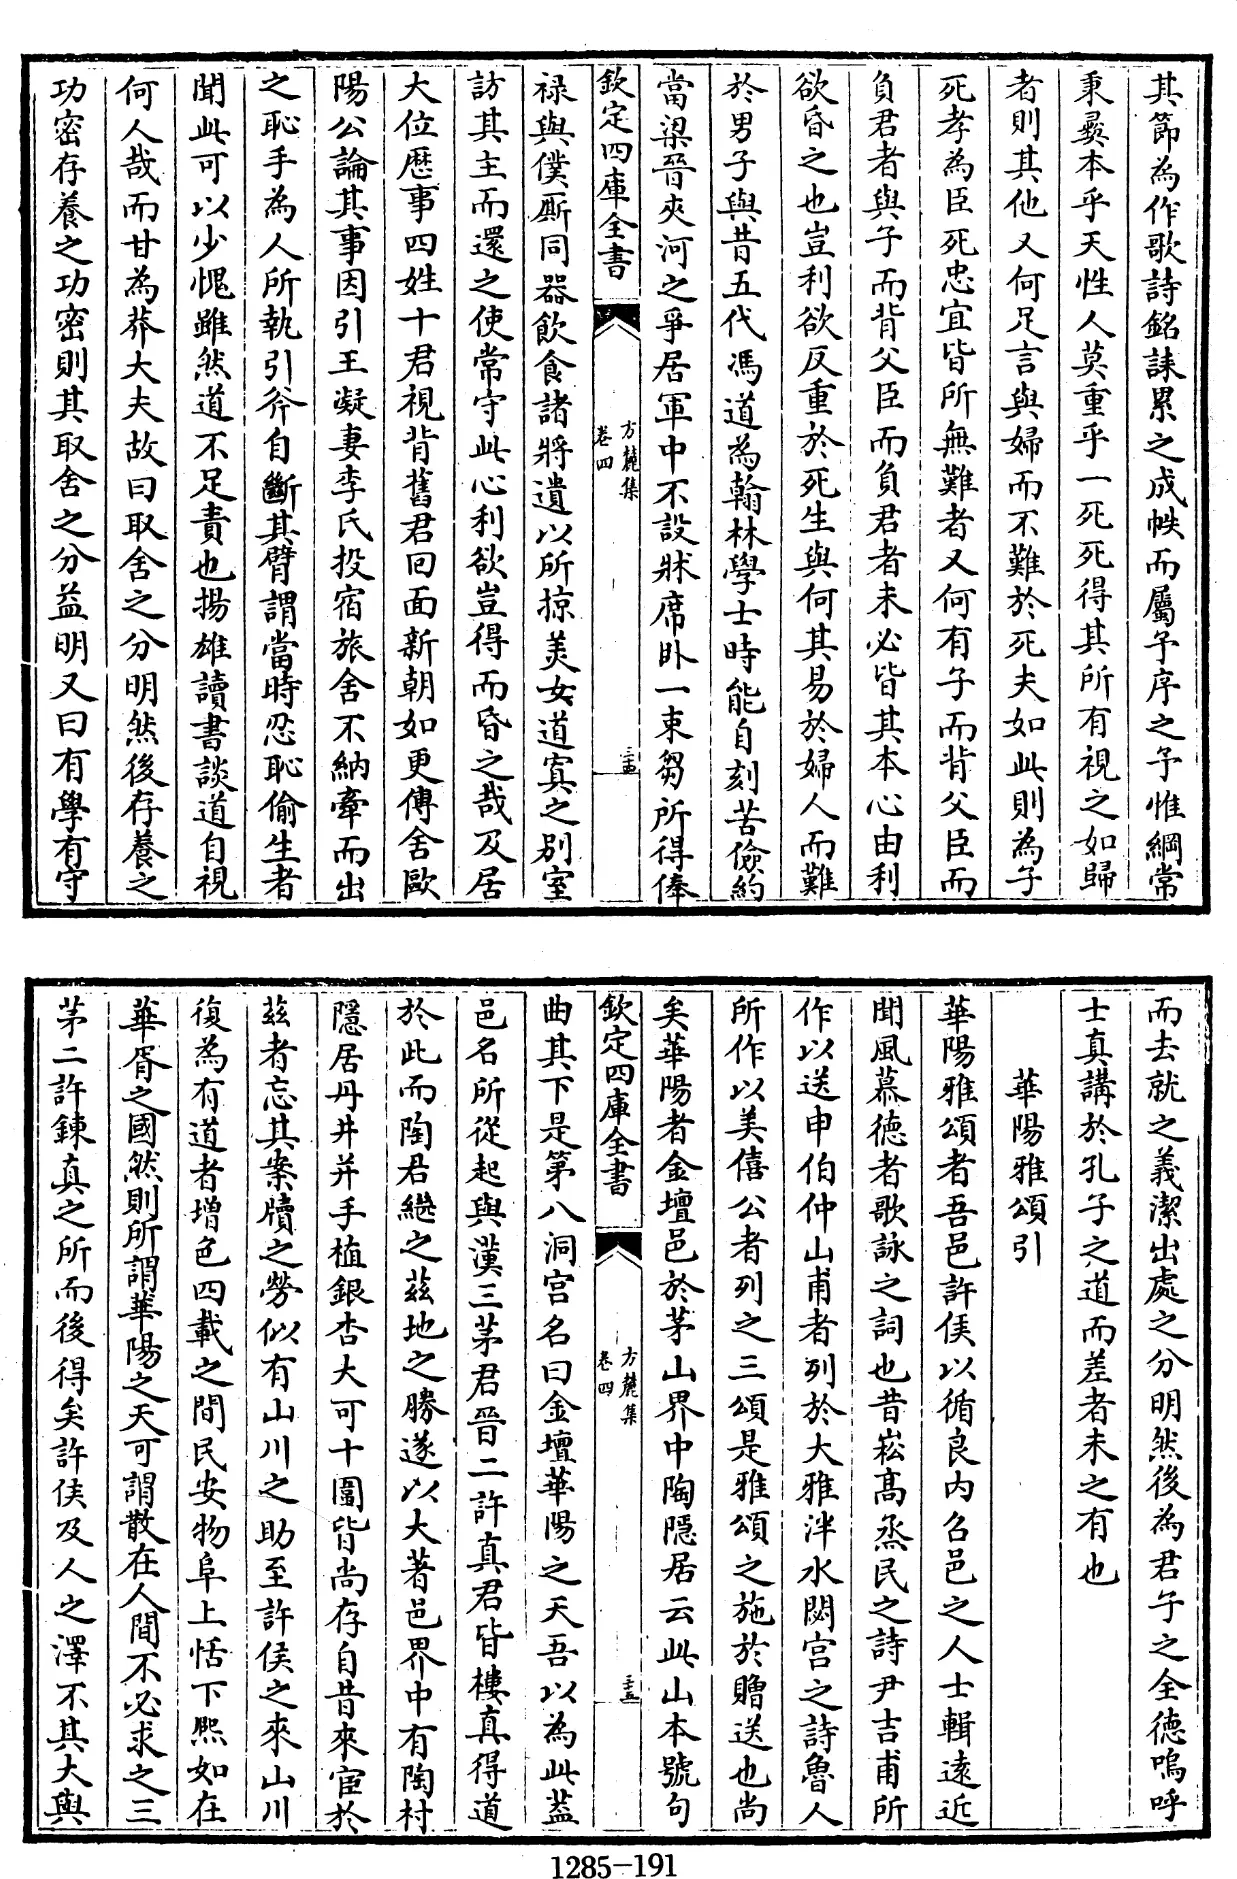 其節為作歌詩銘誄累之成帙而屬予序之予惟綱常
秉彛本乎天性人莫重乎一死死得其所有視之如歸
者則其他又何足言與婦而不難於死夫如此則為子
死孝為臣死忠宜皆所無難者又何有子而背父臣而
負君者與子而背父臣而負君者未必皆其本心由利
欲昏之也豈利欲反重於死生與何其易於婦人而難
於男子與昔五代馮道為翰林學士時能自刻苦儉約
當梁晉夾河之爭居軍中不設牀席卧一束芻所得俸
欽定四庫全書
方麓集
卷四
三十四
禄與僕厮同器飲食諸將遺以所掠美女道寘之别室
訪其主而還之使常守此心利欲豈得而昏之哉及居
大位歴事四姓十君視背舊君回面新朝如更傳舍歐
陽公論其事因引王凝妻李氏投宿旅舍不納牽而出
之恥手為人所執引斧自斷其臂謂當時忍恥偷生者
聞此可以少愧雖然道不足責也揚雄讀書談道自視
何人哉而甘為莽大夫故曰取舍之分明然後存養之
功密存養之功密則其取舍之分益明又曰有學有守
而去就之義潔出處之分明然後為君子之全德嗚呼
士真講於孔子之道而差者未之有也
華陽雅頌引
華陽雅頌者吾邑許侯以循良内召邑之人士輯逺近
聞風慕德者歌詠之詞也昔崧高烝民之詩尹吉甫所
作以送申伯仲山甫者列於大雅泮水閟宫之詩魯人
所作以美僖公者列之三頌是雅頌之施於贈送也尚
矣華陽者金壇邑於茅山界中陶隱居云此山本號句
欽定四庫全書
方麓集
卷四
三十五
曲其下是第八洞宫名曰金壇華陽之天吾以為此葢
邑名所從起與漢三茅君晉二許真君皆棲真得道
於此而陶君繼之兹地之勝遂以大著邑界中有陶村
隱居丹井并手植銀杏大可十圍皆尚存自昔來宦於
兹者忘其案牘之勞似有山川之助至許侯之來山川
復為有道者增色四載之間民安物阜上恬下熙如在
華胥之國然則所謂華陽之天可謂散在人間不必求之三
茅二許鍊真之所而後得矣許侯及人之澤不其大與
1285-191